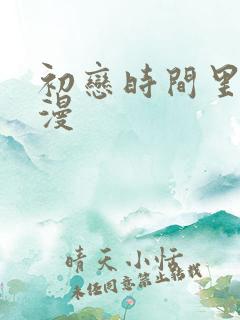 初戀時間里
漫
晴天小恬
未经同意禁止转载